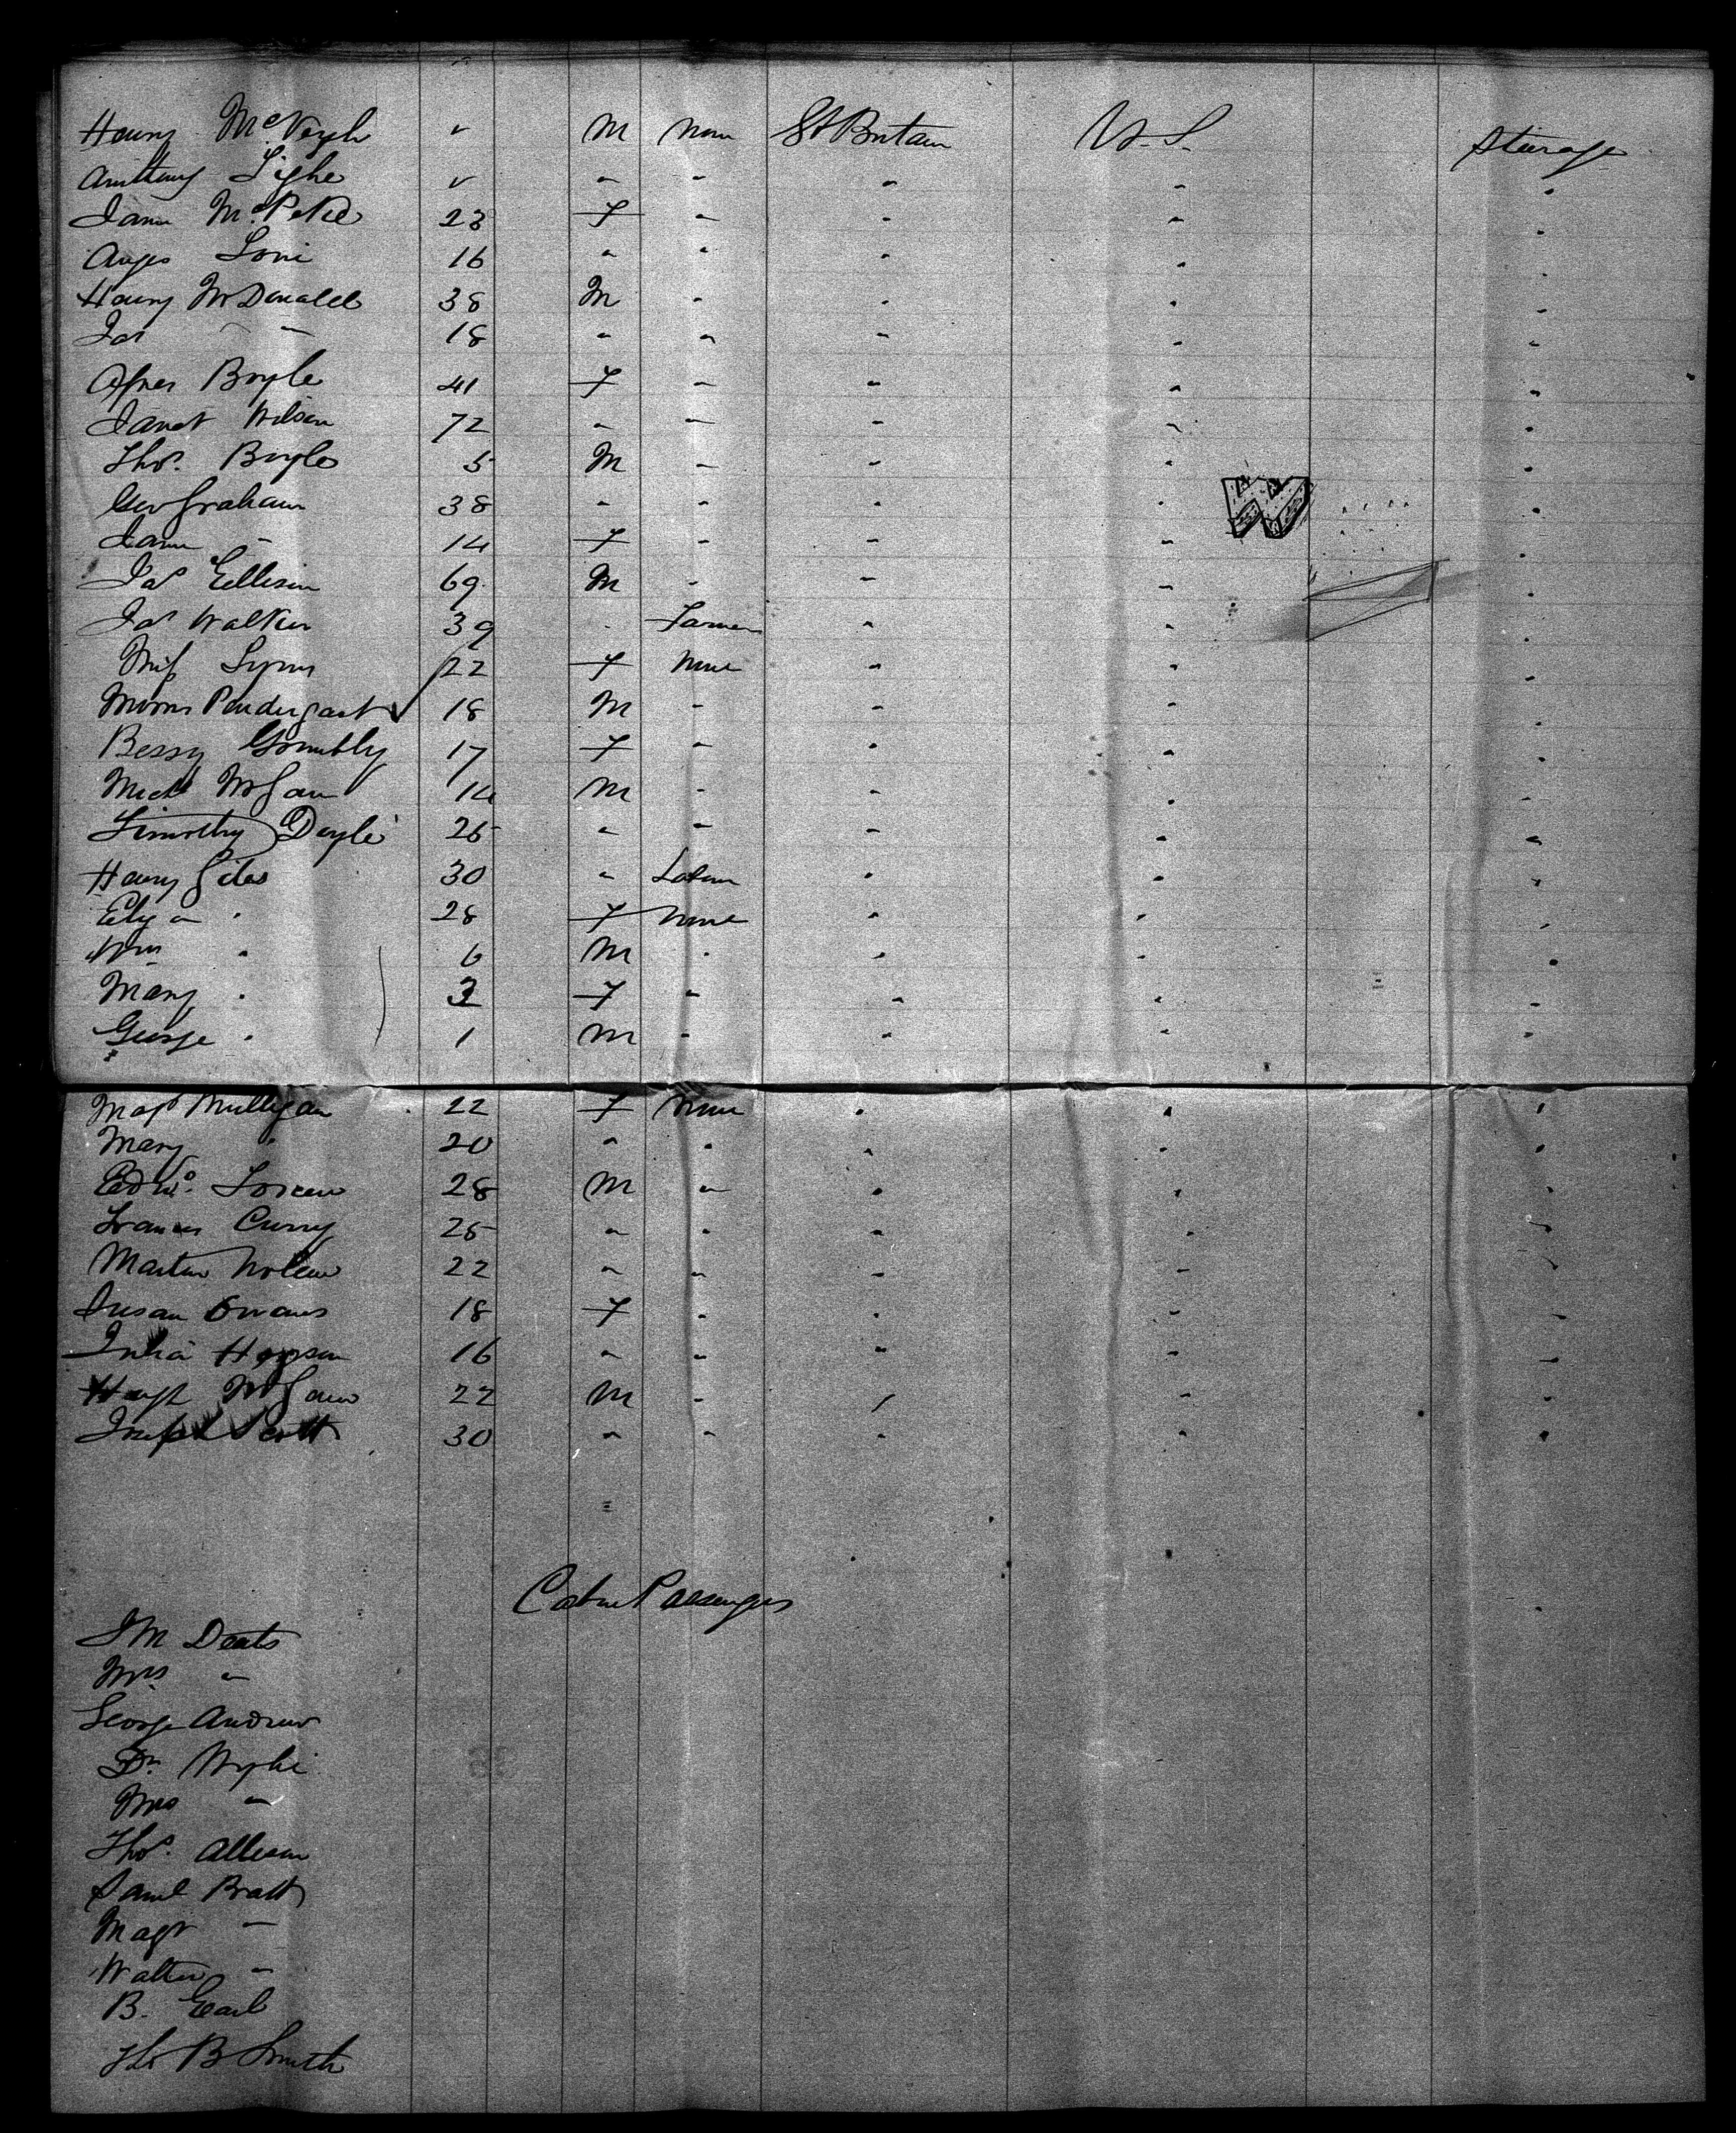 Henry McVeigh " M None Gt Britain U.S. Steerage
Anthony Tighe " " " " " "
Jane McPeke 23 F " " " "
Agnes 16 " " " " "
Henry McDonald 38 M " " " "
Jas " 18 " " " " "
Agnes Boyle 41 F " " " "
Janet Wilson 72 " " " " "
Thos. Boyle 5 M " " " "
Geo Graham 38 " " " " "
Jane " 14 F " " " "
Jas Ellison 69 M " " " "
Jas Walker 39 " Farmer " " "
Miss Lyons 22 F None " " "
Morris Pendergast 18 M " " " "
Bessy Gormbly 17 F " " " "
Michl McGan 14 M " " " "
Timothy Doyle 25 " " " " "
Henry Giles 30 " Labour " " "
Eliza " 28 F None " " "
Wm " 6 M " " " "
Mary " 3 F " " " "
George " 1 M " " " "
Magt Mulligan 22 F None " " "
Mary " 20 " " " " "
Edwd. 28 M " " " "
Francis Curry 25 " " " " "
Martin Nolan 22 " " " " "
Susan Owans 18 F " " " "
Julia Hopson 16 " " " " "
Hugh McGaw 22 M " " " "
Joseph Scott 30 " " " " "
Cabin Passengers
J M Deats
Mrs "
George Andrew
Dr. Wylie
Mrs "
Thos. Allison
Saml Bratt
Magt "
Walter "
B. Earl
Thos B Smith